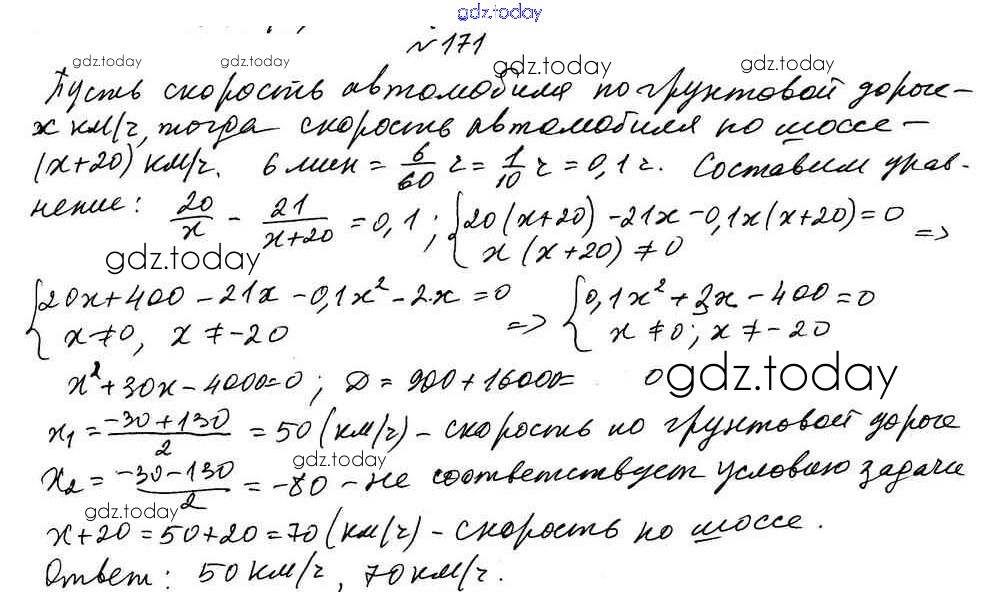 gdz.today
№171
gdz.today gdz.today gdz.today gdz.today
Пусть скорость автомобиля по грунтовой дороге –
x км/ч, тогда скорость автомобиля по шоссе –
(x+20) км/ч. 6 мин = 6/60 ч = 1/10 ч = 0,1 ч. Составим урав-
нение: 20/x - 21/(x+20) = 0,1; {20(x+20) - 21x - 0,1x(x+20) = 0 =>
x(x+20) ≠ 0
gdz.today
{20x+400 - 21x - 0,1x² - 2x = 0 => {0,1x² + 3x - 400 = 0
x ≠ 0, x ≠ -20 x ≠ 0; x ≠ -20
x² + 30x - 4000 = 0; D = 900 + 16000 = 0
gdz.today
x₁ = (-30+130)/2 = 50 (км/ч) – скорость по грунтовой дороге
gdz.today
x₂ = (-30-130)/2 = -80 – не соответствует условию задачи
gdz.today
x+20 = 50+20 = 70 (км/ч) – скорость по шоссе.
Ответ: 50 км/ч, 70 км/ч.